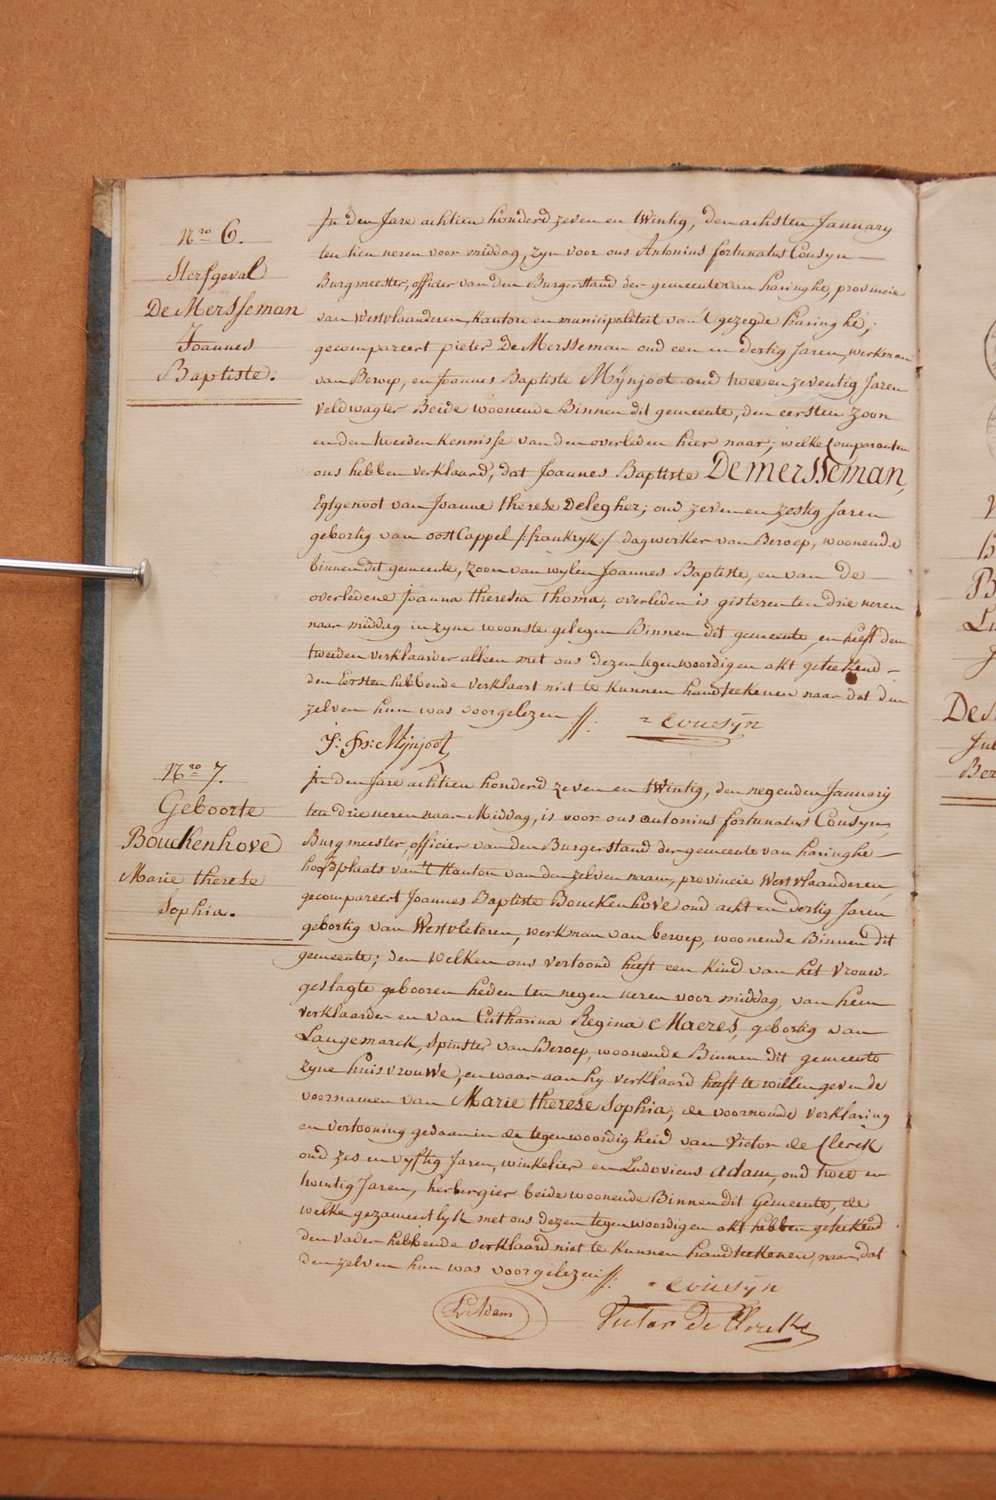 Nro 6.
Sterfgeval
De Mersseman
Joannes
Baptiste.
In den Jare achtien honderd zeven en twintig, den achsten January
ten tien ueren voor middag, zyn voor ons Antonius fortunatus Cousyn
Burgmeester, officier van den Burgerstand der gemeente van haringhe, provincie
van Westvlaanderen, Kanton en municipaliteit van 't gezegde haringhe;
gecompareert pieter De Mersseman oud een en dertig Jaren, werkman
van Beroep, en Joannes Baptiste Mÿnjoot oud twee en zeventig Jaren
veldwagter Beide woonende Binnen dit gemeente, den eersten zoon
en den tweeden kennisse van den overleden hier naar; welke Comparanten
ons hebben verklaard, dat Joannes Baptiste Demersseman,
Egtgenoot van Joanne therese Delegher; oud zeven en zestig Jaren
gebortig van oost Cappel /:frankryk:/ dagwerker van Beroep, woonende
binnen dit gemeente, zoon van wylen Joannes Baptiste, en van de
overledene Joanna theresia Thoma, overleden is gisteren ten drie ueren
naar middag in zyne woonste gelegen Binnen dit gemeente, en heeft den
tweeden verklaarder alleen met ons dezen tegenwoordigen akt geteekend
den Eersten hebbende verklaart niet te kunnen handteekenen naar dat den
zelven hun was voorgelezen //. Cousÿn
J: Bs: Mÿnjoot
Nro 7.
Geboorte
Bouckenhove
Marie therese
Sophia.
In den Jare achtien honderd zeven en twintig, den negenden Januarÿ
ten drie ueren naar Middag, is voor ons antonius fortunatus Cousyn,
Burgmeester, officier van den Burgerstand der gemeente van haringhe
hoofdplaats van 't Kanton van den zelven naam, provincie Westvlaanderen,
gecompareert Joannes Baptiste Bouckenhove oud acht en dertig Jaren
gebortig van Westvleteren, werkman van beroep, woonende Binnen dit
gemeente; den welken ons vertoond heeft een kind van het vrouw-
geslagte gebooren heden ten negen ueren voor middag, van hem
verklaarder en van Catharina Regina Maezes, gebortig van
Langemarck, Spinster van Beroep, woonende Binnen dit gemeente
zyne huisvrouwe, en waar aan hy verklaard heeft te willen geven de
voornamen van Marie therese Sophia, de voornoemde verklaring
en vertooning gedaan in de tegenwoordigheid van Victor de Clerck
oud zes en vyftig Jaren, winkelier en Ludovicus Adam, oud twee en
twintig Jaren, herbergier beide woonende Binnen dit Gemeente, de
welke gezamentlyk met ons dezen tegenwoordigen akt hebben geteekend
den vader hebbende verklaard niet te kunnen handteekenen, naar dat
den zelven hun was voorgelezen //. Cousÿn
L. Adam
Victor De Clerck